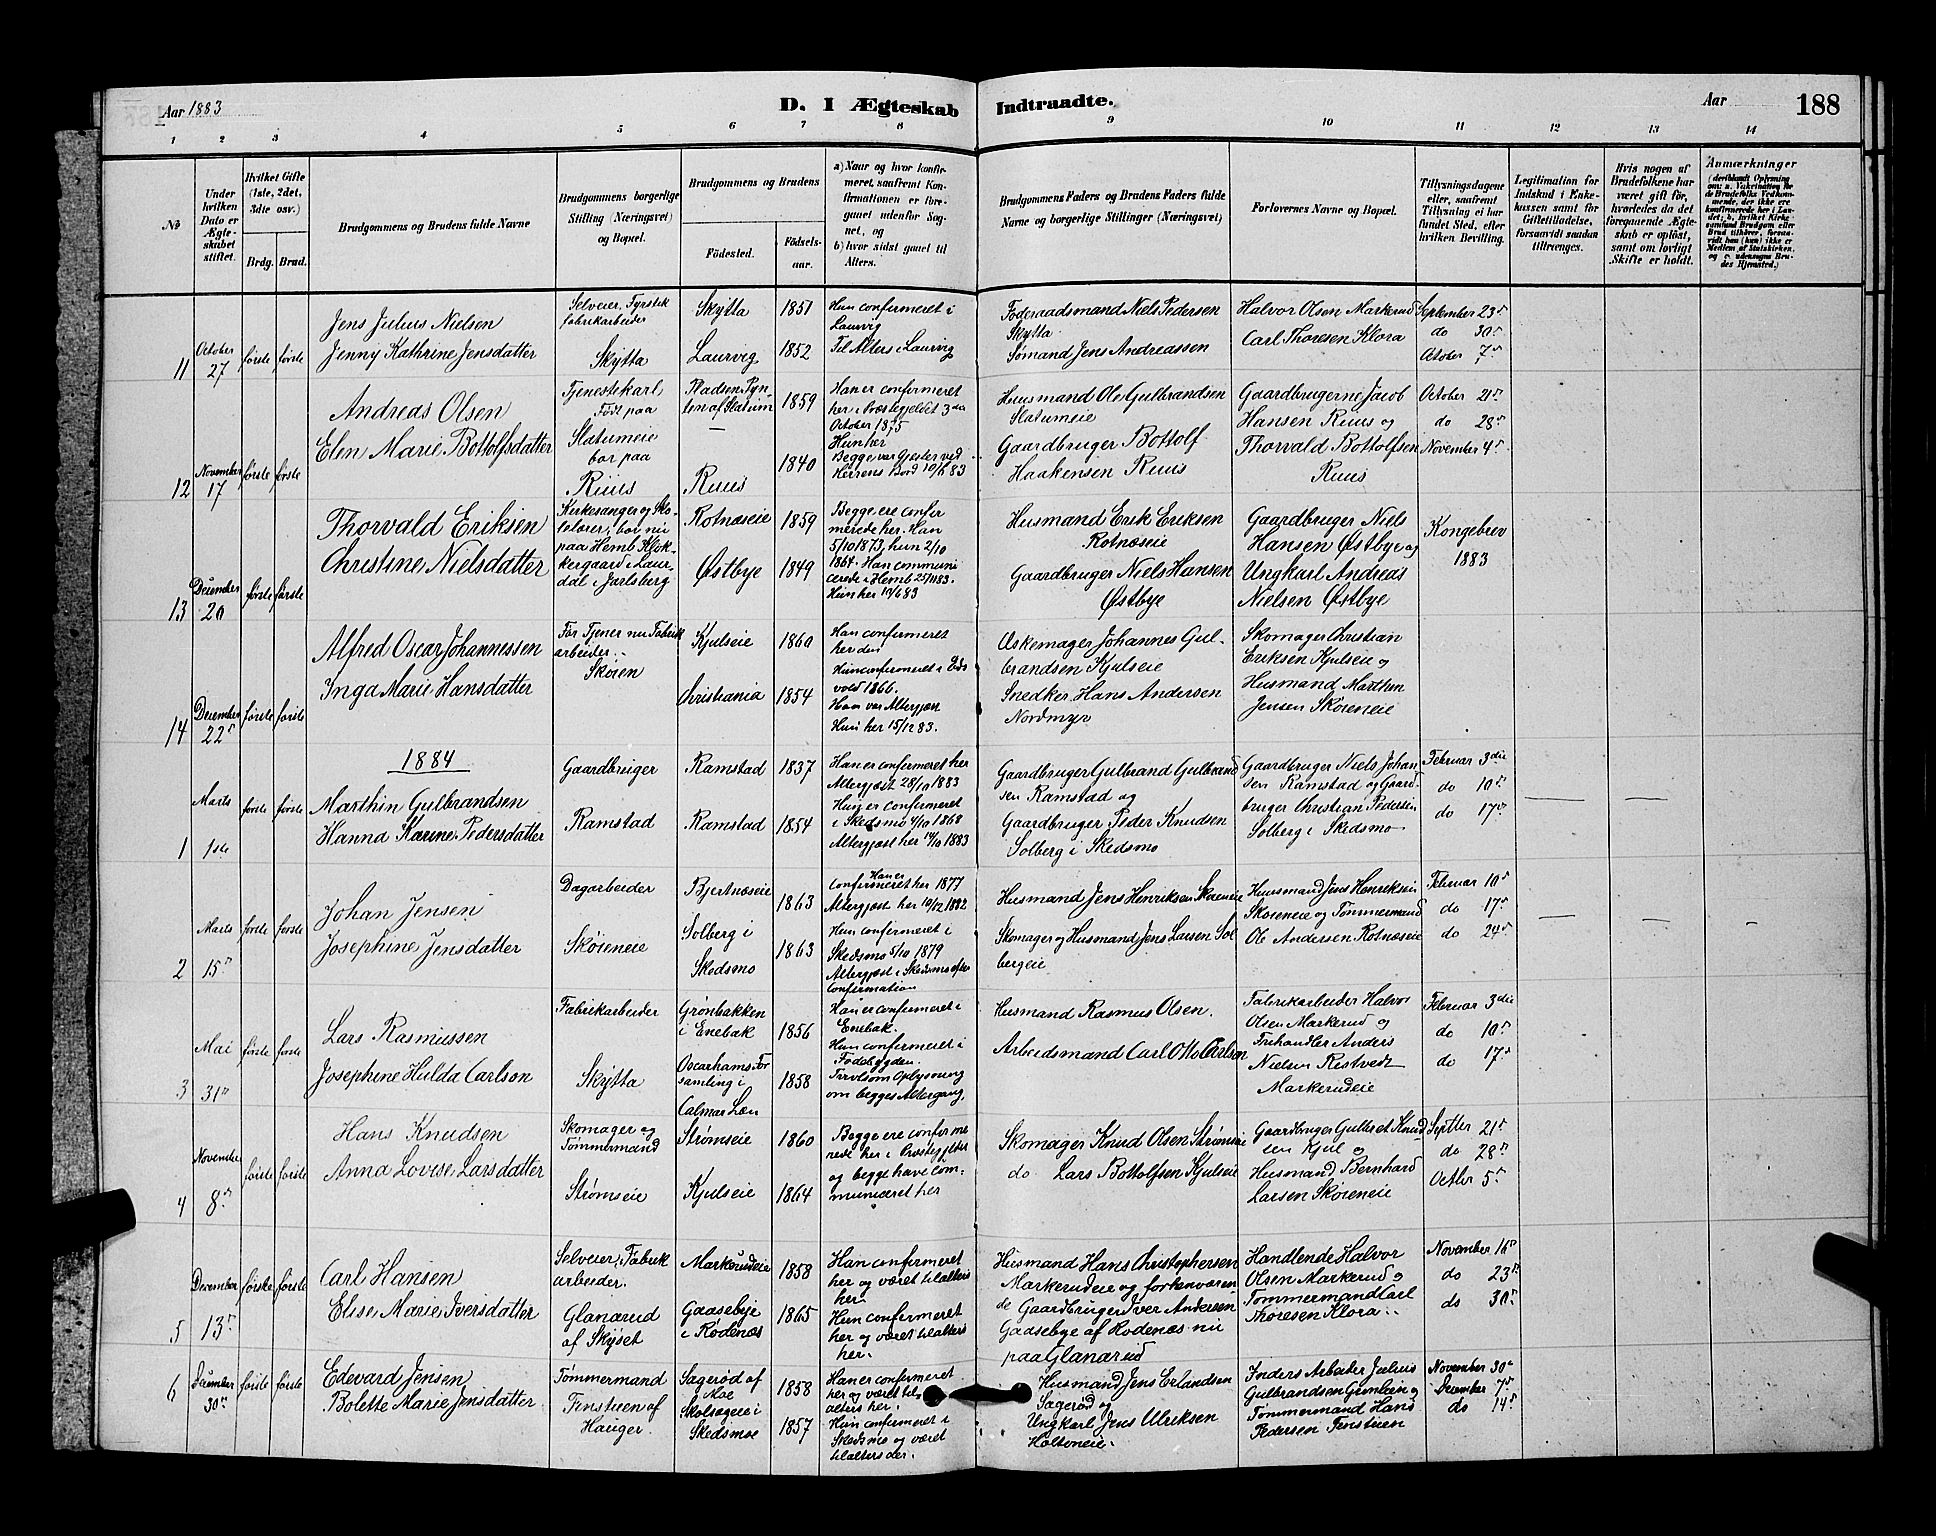 Aar 1883
D. I Ægteskab Indtraadte.
Aar
188
1 2 3 4 5 6 7 8 9 10 11 12 13 14
No
Under hvilken Dato er Ægteskabet stiftet.
Hvilket Gifte (1ste, 2det, 3dte osv.)
Brdg. Brud.
Brudgommens og Brudens fulde Navne
Brudgommens borgerlige Stilling (Næringsvei) og Bopæl.
Brudgommens og Brudens
Fødested.
Fødselsaar.
a) Naar og hvor konfirmeret, saafremt Konfirmationen er foregaaet udenfor Sognet, og
b) hvor sidst gaaet til Alters.
Brudgommens Faders og Brudens Faders fulde Navne og borgerlige Stillinger (Næringsvei)
Forlovernes Navne og Bopæl.
Tillysningsdagene eller, saafremt Tillysning ei har fundet Sted, efter hvilken Bevilling.
Legitimation for Indskud i Enkekassen samt for Giftetilladelse, forsaavidt saadan tiltrænges.
Hvis nogen af Brudefolkene har været gift før, hvorledes da det foregaaende Ægteskab er opløst, samt om lovligt Skifte er holdt.
Anmærkninger
11
October 27
første første
Jens Julius Nielsen
Jenny Kathrine Jensdatter
Selveier, Fyrstik
fabrikarbeider
Skytta
Skytta 1851
Laurvig 1852
Hun confirmeret i
Laurvig
Til Alters i Laurvig
Føderaadsmand Niels Pedersen
Skytta
Sømand Jens Andreassen
Halvor Olsen Markerud
Carl Thoresen Klora
September 23
do 30
October 7
12
November 17
første første
Andreas Olsen
Elen Marie Bottolfsdatter
Tjenestekarl,
Født paa
Slatumeie
bor paa
Ruus
Pladsen
af Slatum 1859
Ruus 1840
Han er confirmeret
her i Præstegjeldet 3die
October 1875
Hun her
Begge var Gjester ved
Herrens Bord 10/6 83
Huusmand Ole Gulbrandsen
Slatumeie
Gaardbruger Bottolf
Haakensen Ruus
Gaardbrugerne Jacob
Hansen Ruus og
Thorvald Bottolfsen
Ruus
October 21
do 28
November 4
13
December 20
første første
Thorvald Eriksen
Christine Nielsdatter
Kirkesanger og Sko-
lelærer, bor nu
paa Hemb Klok-
kergaard i Laur-
dal i Jarlsberg
Rotnæseie 1859
Østbye 1849
Begge ere confir
merede her. Han
5/10 1873, hun 2/10
1864. Han communi
cerede i Hemb 25/11 83.
Hun her
Husmand Erik Eriksen
Rotnæseie
Gaardbruger Niels Hansen
Østbye
Gaardbruger Niels
Hansen Østbye og
Ungkarl Andreas
Nielsen Østbye
Kongebrev
1883
14
December 22
første første
Alfred Oscar Johannessen
Inga Marie Hansdatter
Før Tjener nu Fabrik
arbeider
Skøien
Kjulseie 1860
Christiania 1854
Han confirmeret
her
Hun confirmeret i Eids
vold 1866.
Han var Altergjæst
Hun her 15/12 83.
Askemager Johannes Gul-
brandsen Kjulseie
Snedker Hans Andersen
Nordmyr
Skomager Christian
Eriksen Kjulseie og
Husmand Marthin
Jensen Skøieneie
1884
1
Marts 1ste
første første
Marthin Gulbrandsen
Hanna Karine Pedersdatter
Gaardbruger
Ramstad
Ramstad 1837
Ramstad 1854
Han er confirmeret her
Altergjæst 28/10 1883
Hun er confirmeret
i Skedsmo 4/10 1868
Altergjæst her 14/10 1883
Gaardbruger Gulbrand Gulbrand
sen Ramstad og
Gaardbruger Peder Knudsen
Solberg i Skedsmo
Gaardbruger Niels Johan
sen Ramstad og Gaard-
bruger Christian Pedersen
Solberg i Skedsmo
Februar 3die
do 10
do 17
2
Marts 15
første første
Johan Jensen
Josephine Jensdatter
Dagarbeider
Skøieneie
Bjertnæseie 1863
Solberg i
Skedsmo 1863
Han er
confirmeret her 1877
Altergjæst her 10/12 1882
Hun confirmeret i
Skedsmo 5/10 1879
Altergjæst i Skedsmo efter
Confirmation
Husmand Jens Henriksen Skøieneie
Skomager og Husmand Jens Larsen Sol
bergeie
Huusmand Jens Henriksen
Skøieneie og Tømmermand
Ole Andersen Rotnæseie
Februar 10
do 17
do 24
3
Mai 31
første første
Lars Rasmussen
Josephine Hulda Carlson
Fabrikarbeider
Skytta
Grønbakken
i Enebak 1856
Oscarhams For
samling i
Calmar Læn 1858
Han er confirmeret i
Enebak.
Hun confirmeret i
Fødebygden.
Tvivlsom Oplysning
om begges Altergang
Husmand Rasmus Olsen.
Arbeidsmand Carl Otto Carlson
Fabrikarbeider Halvor
Olsen Markerud og
Frihandler Anders
Nielsen Restvedt
Markerudeie
Februar 3die
do 10
do 17
4
November 8
første første
Hans Knudsen
Anna Lovise Larsdatter
Skomager og
Tømmermand
Strømseie
Strømseie 1860
Kjulseie 1864
Begge ere confirme
rede her i Præstegjeldet
og begge have com-
muniseret her
Skomager Knud Olsen Strømseie
do Lars Bottolfsen Kjulseie
Gaardbruger Gulbrand Knud
sen Kjul og
Husmand Bernhard
Larsen Skøieneie
Septber 21
do 28
Octber 5
5
December 13
første første
Carl Hansen
Elise Marie Iversdatter
Selveier, Fabrik
arbeider.
Glanarud
af Skyset
Markerudeie 1858
Gaasebye
i Rødenæs 1865
Han confirmeret
her og været til alters
her.
Hun confirmeret
her og været til alters
her.
Husmand Hans Christophersen
Markerudeie og forhenværen
de Gaardbruger Iver Andersen
Gaasebye af Rødenæs nu
paa Glanarud
Handlende Halvor
Olsen Markerud og
Tømmermand Carl
Thoresen Klora
November 16
do 23
do 30
6
December 30
første første
Edevard Jensen
Bolette Marie Jensdatter
Tømmermand
Fenstuen af
Hauger.
Sagerød af
Moe 1858
i
Skedsmoe 1857
Han er confirmeret
her og været til
alters her.
Hun confirmeret i
Skedsmo og været
til alters der.
Husmand Jens Erlandsen
Sagerød og
Ungkarl Jens Ulriksen
Holtoneie.
Inders Arbeider Julius
Gulbrandsen og
Tømmermand Hans
Pedersen Fenstuen
November 30
December 7
do 14